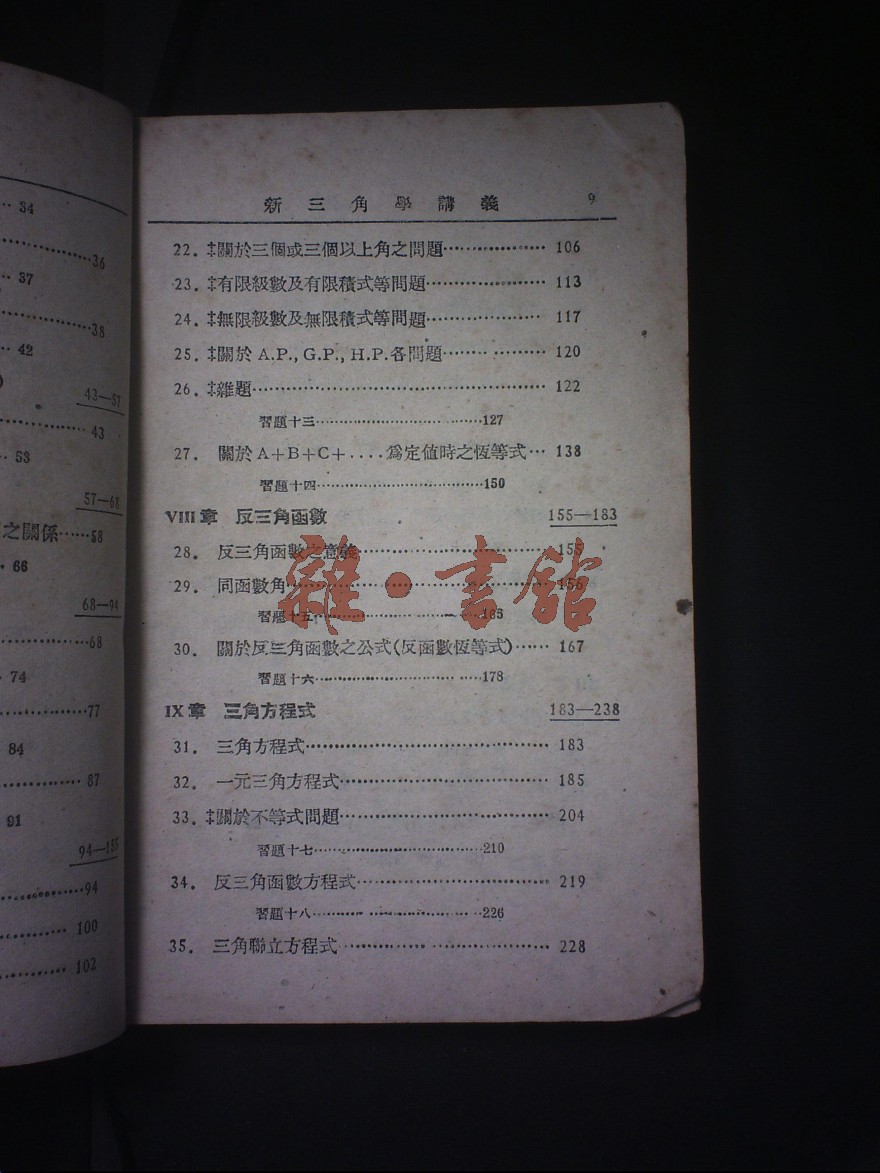 34
36
37
38
42
43—57
43
53
57—68
之關係……58
66
68—94
68
74
77
84
87
91
94
100
102
新三角學講義 9
22. ‡關於三個或三個以上角之問題……………… 106
23. ‡有限級數及有限積式等問題………………… 113
24. ‡無限級數及無限積式等問題………………… 117
25. ‡關於 A.P., G.P., H.P. 各問題……………… 120
26. ‡雜題………………………………………… 122
習題十三………………………127
27. 關於 A+B+C+....為定值時之恆等式… 138
習題十四………………………150
VIII 章 反三角函數 155—183
28. 反三角函數之意義………………………… 155
29. 同函數角…………………………………… 156
習題十五………………………165
30. 關於反三角函數之公式(反函數恆等式)…… 167
習題十六………………………178
IX 章 三角方程式 183—238
31. 三角方程式………………………………… 183
32. 一元三角方程式…………………………… 185
33. ‡關於不等式問題…………………………… 204
習題十七………………………210
34. 反三角函數方程式………………………… 219
習題十八………………………226
35. 三角聯立方程式…………………………… 228
雜·書館